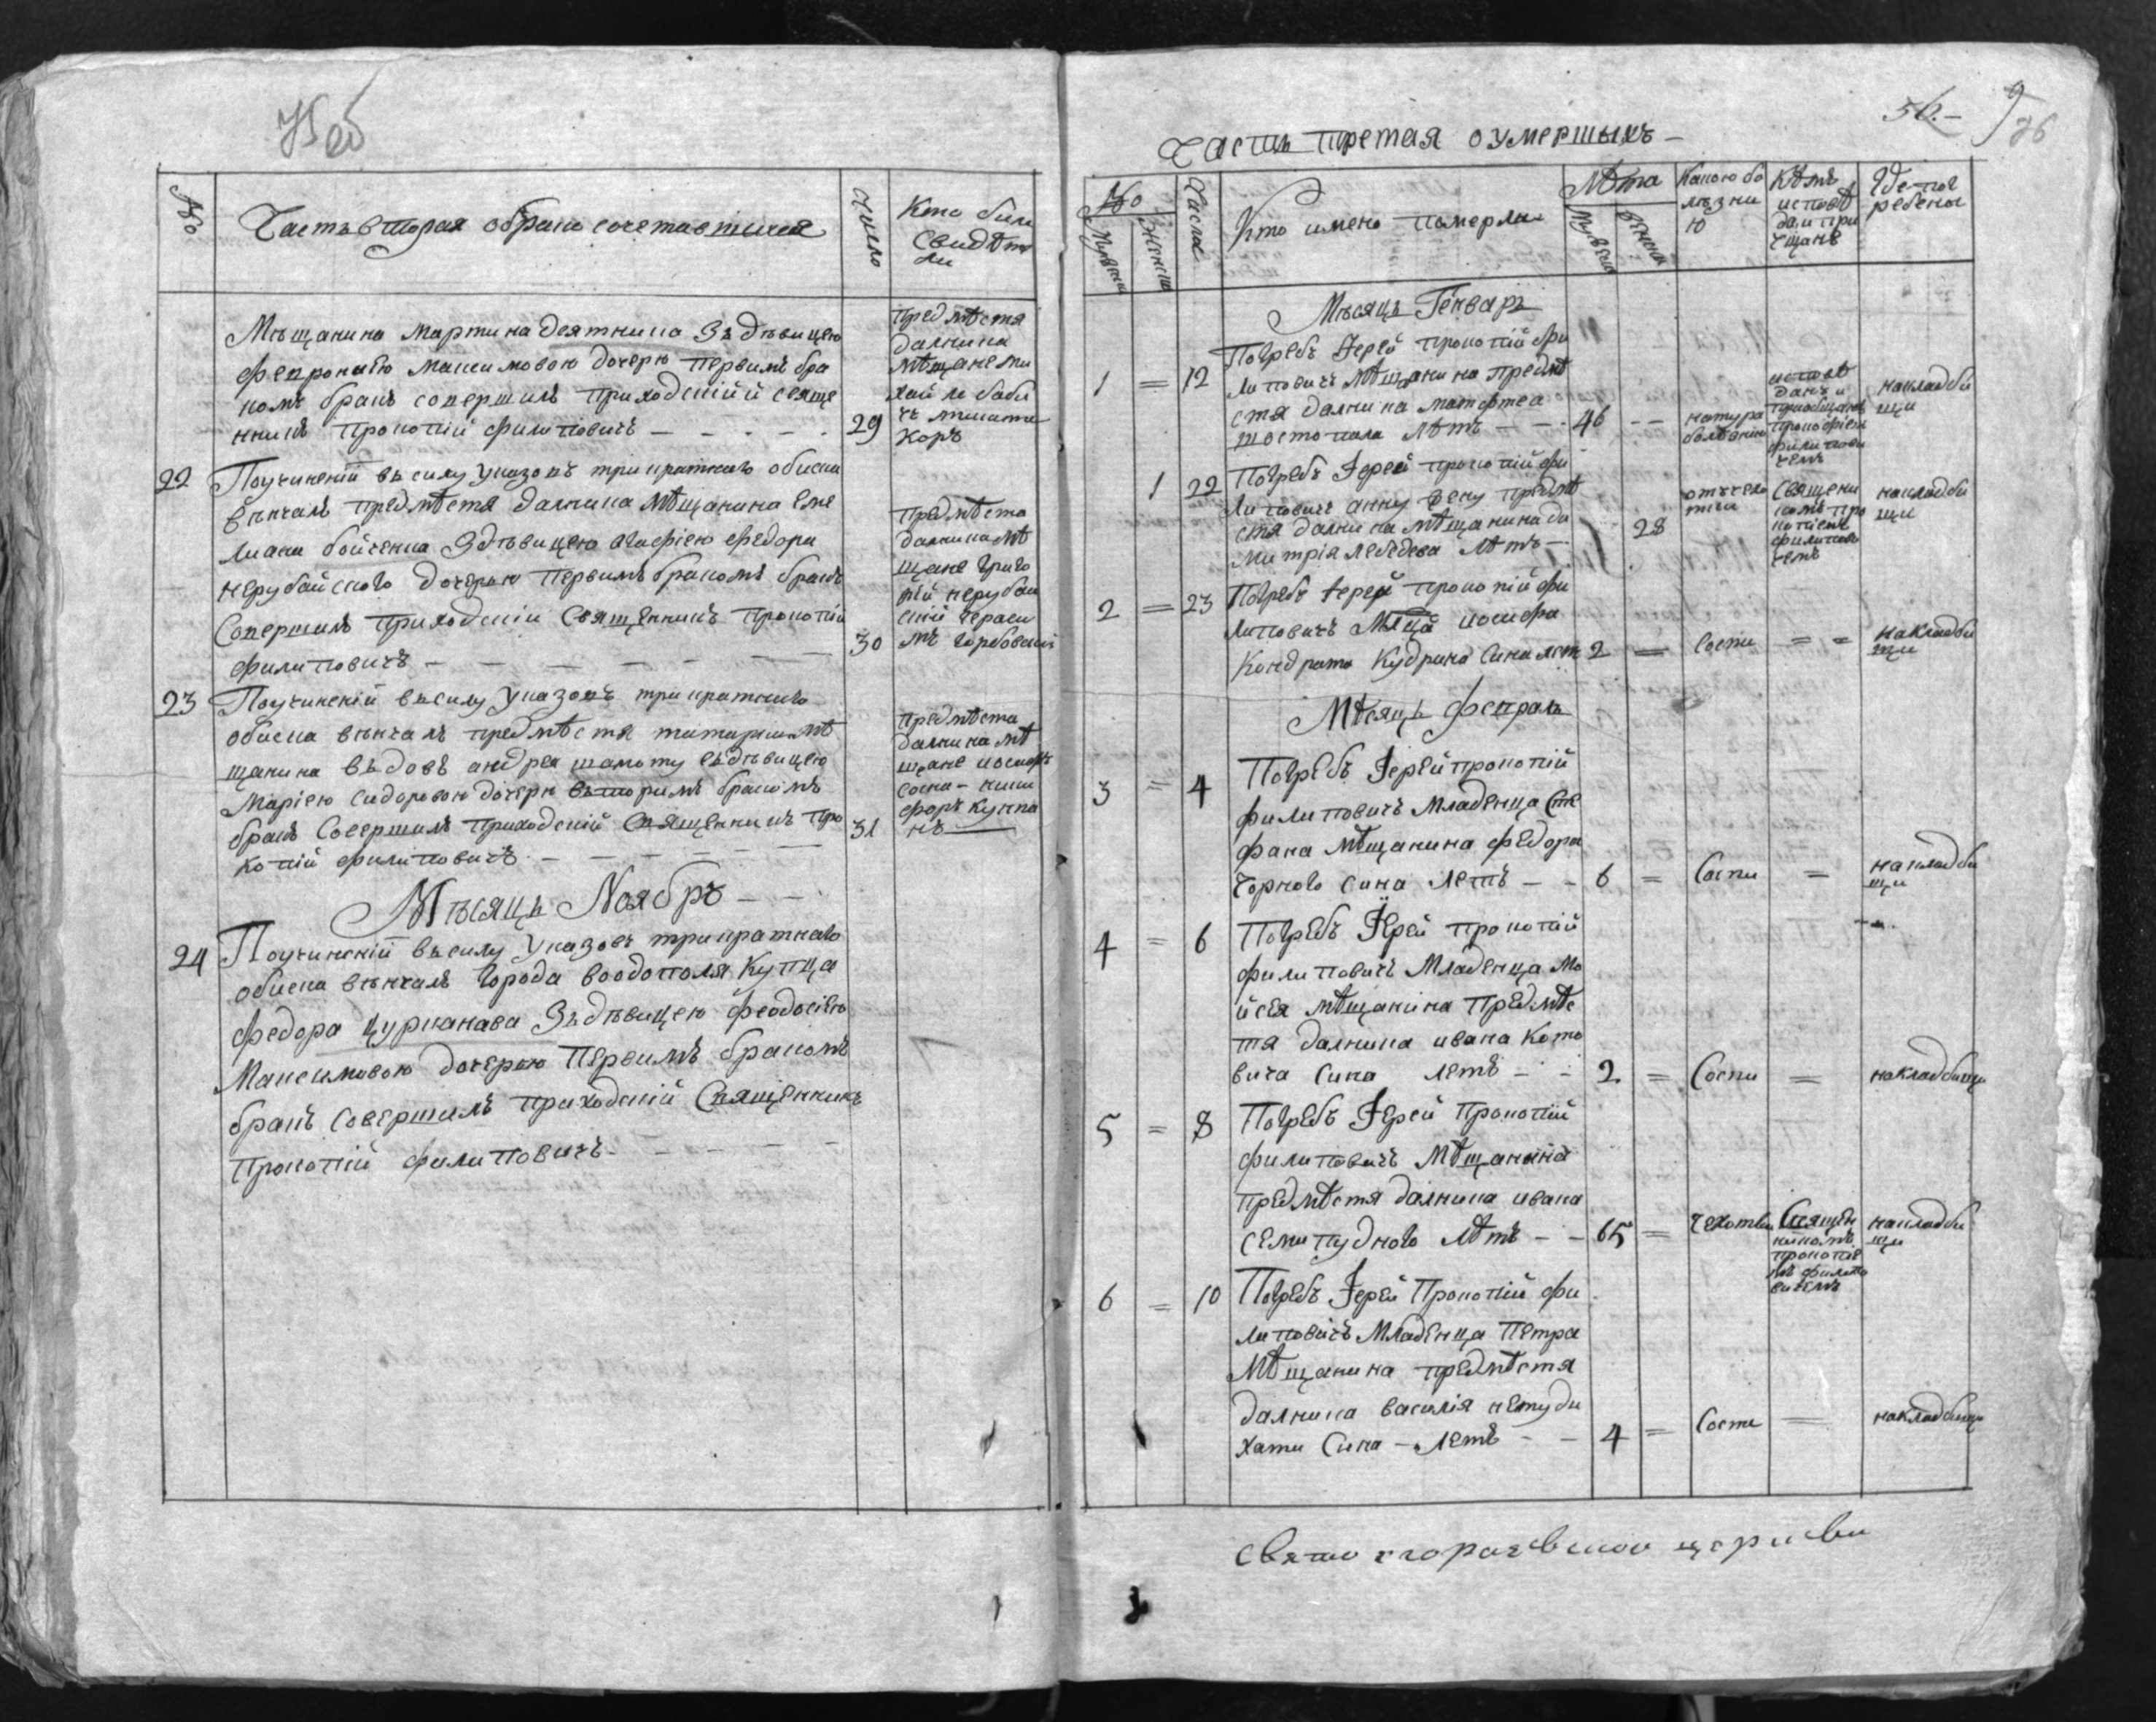 №
Часть вторая обрако сочетавшихся
Число
Кто били
Свидѣте
ли
Мѣщанина Мартина Деятника Зъ дѣвицею
Февронѣею Максимовою дочерю первимъ бра
комъ бракъ совершилъ приходскій свяще
нникъ Прокопій Филиповичъ
29
предмѣстя
далника
мѣщане ми
хайло
22
Поучиненій въ силу указовъ трикратнаго обиска
вѣнчалъ предмѣстя далника мѣщанина Еме
лиана бойченка Здѣвицею Агафіею Федора
нерубайского дочерью первимъ бракомъ бракъ
Совершилъ приходскій Священникъ Прокопій
филиповичъ
30
предмѣстя
далника мѣ
щане григо
рій неруба
скій гераси
мъ горбовский
23
Поучиненій въ силу указовъ трикратнаго
обиска вѣнчалъ предмѣстя татарки мѣ
щанина въдовъ андрея шамоту съдѣвицею
Маріею Сидоровою дочерю въторимъ бракомъ
бракъ Совершилъ приходскій Священникъ Про
копій филиповичъ
31
предмѣстя
далника мѣ
щане иосифъ
сокна - ники
форъ кукпа
нъ
Мѣсяцъ Ноябръ
24
Поучиненій въ силу Указовъ трикратнаго
обиска вѣнчалъ города воодополя Купца
федора цурканава Зъдѣвицею феодосіею
Максимовою дочерью Первимъ бракомъ
бракъ Совершилъ приходскій Священникъ
Прокопій филиповичъ
56.
Часть третая о умершыхъ
№
Мужеска
Женска
Числа
Кто имено померли
Лѣта
Мужеска
Женска
Какою бо
лѣзни
ю
Кѣмъ
исповѣ
дан и при
чщанъ
Где пог
ребены
Мѣсяцъ Генваръ
1 = 12
Погребъ Іерей прокопій фи
липовичъ мѣщанина предмѣ
стя далника матфея
шостопала Лѣтъ - - 46 - -
натура
болѣзнію
исповѣ
данъ и
приобщанъ
прокофіем
филипови
чемъ
накладби
щи
1 22
Погребъ Іерей прокопій фи
липовичъ анну жену предмѣ
стя далника мѣщанина ди
митрія лебедева Лѣтъ - 28
отъчехо
тки
Священи
комъ про
копіемъ
филипови
чемъ
накладби
щи
2 = 23
Погребъ Іерей прокопій фи
липовичъ Млца иосифа
Кондрата Кудрина Сина лет 2 = Соспи = = Накладби
щи
Мѣсяцъ Февраль
3 = 4
Погребъ Іерей прокопій
филиповичъ Младенца Сте
фана Мѣщанина Федора
Чорного Сина Летъ - - 6 = Соспи = накладби
щи
4 = 6
Погребъ Іерей прокопій
филиповичъ Младенца Мо
йсея мѣщанина Предмѣс
тя далника ивана Кото
вича Сина летъ - - 2 = Соспи = накладбищи
5 = 8
Погребъ Іерей Прокопій
филиповичъ Мѣщанина
предмѣстя далника ивана
Семипудного Лѣтъ - - 65 = Чехотки
Священ
никомъ
прокопіе
мъ филипо
вичемъ
накладби
щи
6 = 10
Погребъ Іерей Прокопій фи
липовичъ Младенца Петра
Мѣщанина предмѣстя
далника василія нетуди
хати Сина - Летъ - - 4 = Соспи = накладбищи
свято церкви